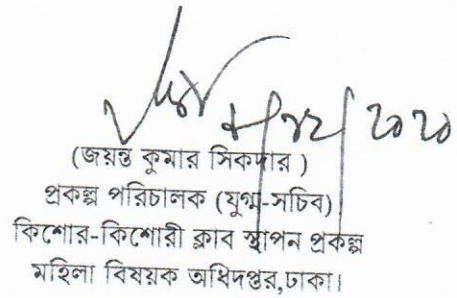 (জয়ন্ত কুমার সিকদার )
প্রকল্প পরিচালক (যুগ্ম-সচিব)
কিশোর-কিশোরী ক্লাব স্থাপন প্রকল্প
মহিলা বিষয়ক অধিদপ্তর,ঢাকা।